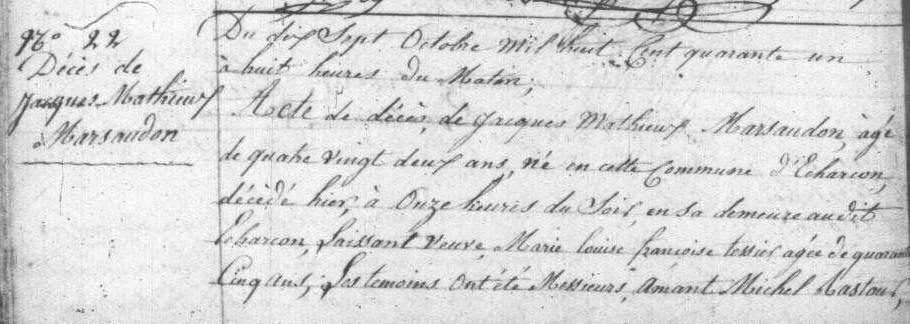 N° 22
Décès de
Jacques Mathieux
Marsaudon
Du dix Sept Octobre mil huit Cent quarante un
à huit heures du Matin;
Acte de décès, de Jacques Mathieux Marsaudon, âgé
de quatre vingt deux ans, né en cette Commune d'Echarcon,
décédé hier, à Onze heures du Soir, en sa demeure audit
Echarcon, Laissant Veuve, Marie Louise françoise tessier agée de quarante
Cinq ans; Les temoins ont été Messieurs, Amant Michel